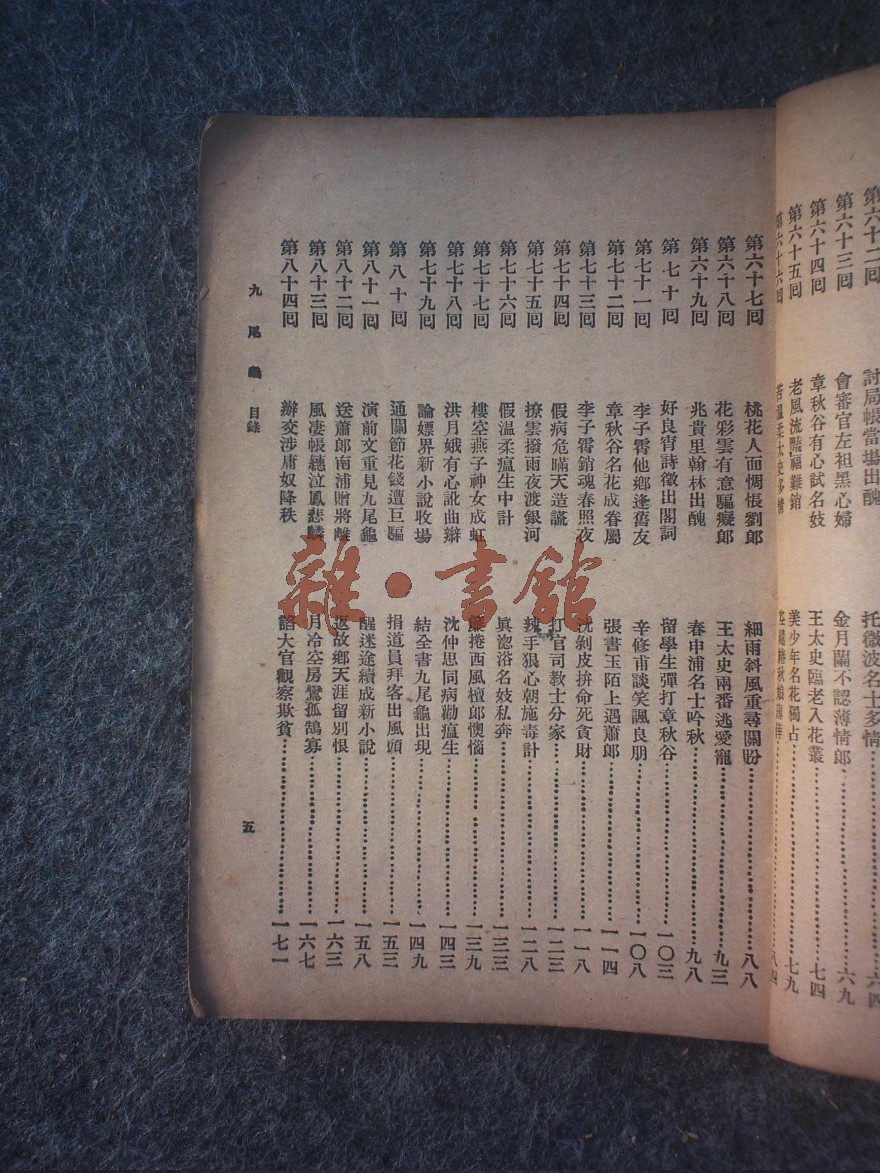 第六十二回　討局帳當場出醜　托微波名士多情
第六十三回　會審官左袒黑心婦　金月蘭不認薄情郎…六九
第六十四回　章秋谷有心試名妓　王太史臨老入花叢…七四
第六十五回　老風流豔福難銷　美少年名花獨占…七九
第六十六回　太史多情
第六十七回　桃花人面惆悵劉郎　細雨斜風重尋關盼…八八
第六十八回　花彩雲有意騙癡郎　王太史兩番逃愛寵…九三
第六十九回　兆貴里翰林出醜　春申浦名士吟秋…九八
第七十回　好良宵詩徵出閣詞　留學生彈打章秋谷…一〇三
第七十一回　李子霄他鄉逢舊友　辛修甫談笑諷良朋…一〇八
第七十二回　章秋谷名花成眷屬　張書玉陌上遇蕭郎…一一四
第七十三回　李子霄銷魂春照夜　沈剝皮拚命死貪財…一一八
第七十四回　假病危瞞天造謊　打官司教士分家…一二三
第七十五回　撩雲撥雨夜渡銀河　辣手狠心朝施毒計…一二八
第七十六回　假溫柔瘟生中計　真㴽浴名妓私奔…一三三
第七十七回　樓空燕子神女成虹　簾捲西風檀郎懊惱…一三九
第七十八回　洪月娥有心訛曲辮　沈仲思同病勸瘟生…一四三
第七十九回　論嫖界新小說收場　結全書九尾龜出現…一四九
第八十回　通關節花錢遭巨騙　捐道員拜客出風頭…一五三
第八十一回　演前文重見九尾龜　醒迷途續成新小說…一五八
第八十二回　送蕭郎南浦賭將離　返故鄉天涯留別恨…一六三
第八十三回　風凄帳繐泣鳳悲麟　月冷空房鸞孤鵠寡…一六七
第八十四回　辦交涉庸奴降秩　諂大官觀察欺貧…一七一
九尾龜　目錄
五
雜·書館